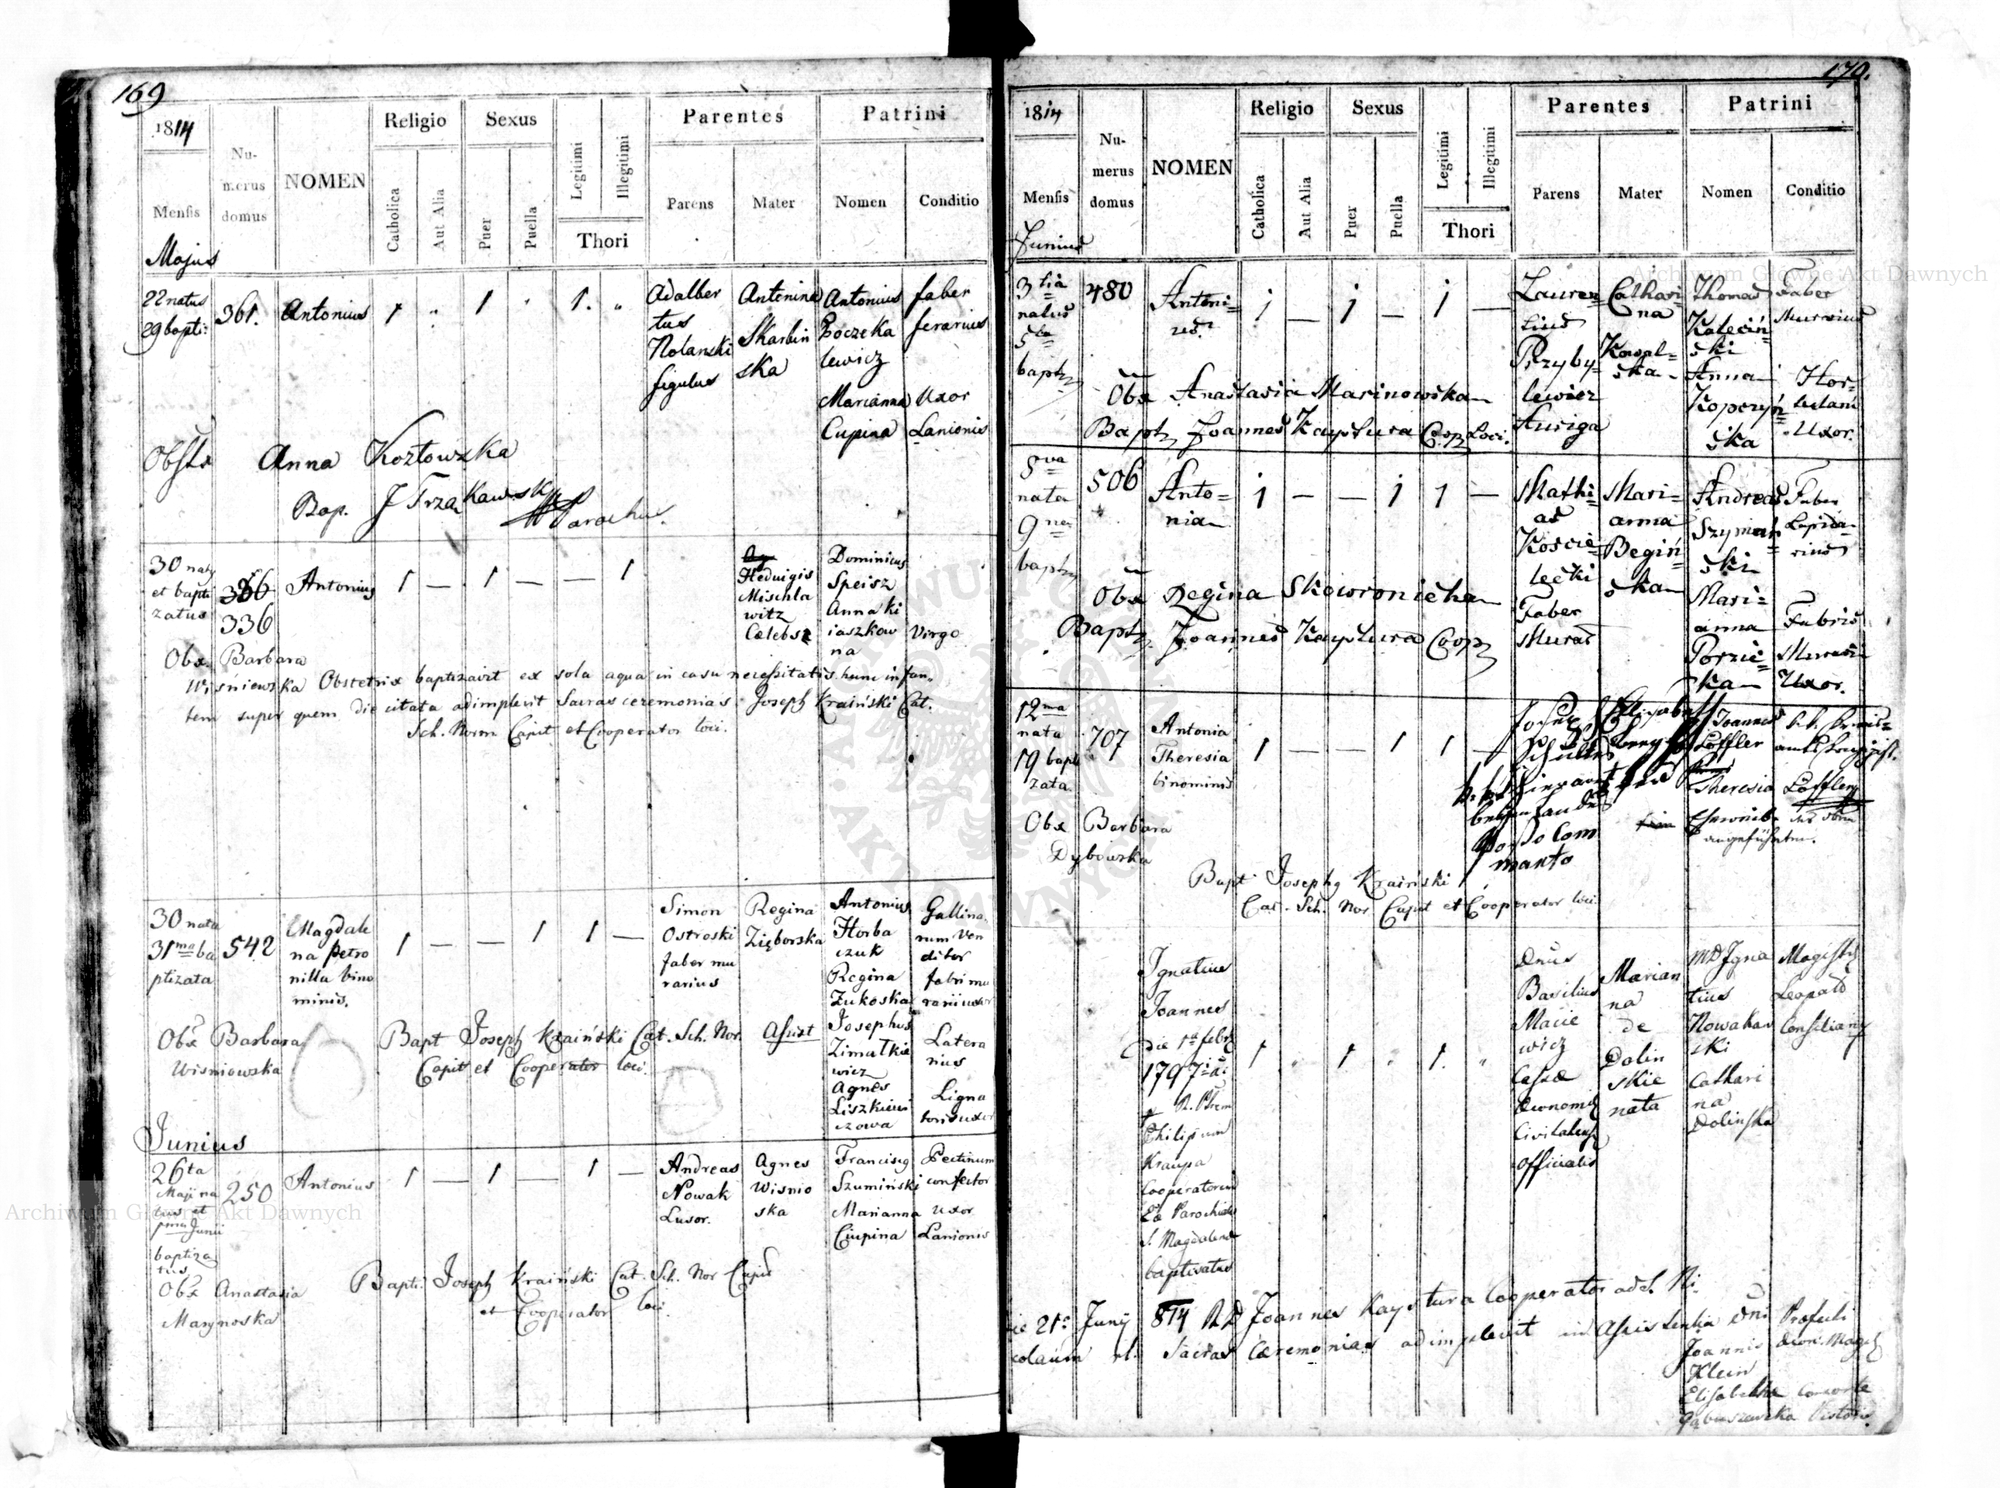 169
1814
Numerus domus
NOMEN
Religio
Sexus
Legitimi
Illegitimi
Parentes
Patrini
Mensis
Catholica
Aut Alia
Puer
Puella
Thori
Parens
Mater
Nomen
Conditio
Majus
22 natus
29 bapti:
361.
Antonius
1
1
1.
Adalber
tus
Nolanski
figulus
Antonina
Skarbin
ska
Antonius
lewicz
Marianna
Cupina
faber
ferarius
Uxor
Lanionis
Obstx Anna Kozłowska
Bap. J Trza kawski Parochus.
30 naty
et bapti
zatus
336
Antonius
1 — 1 — — 1
Heduigis
Mischla
witz
Celebs
Dominicus
Speisz
Anna ki
iaszkow
na
Virgo
Obx. Barbara
Wiśniewska Obstetrix baptizavit ex sola aqua in casu necessitatis hunc infan-
tem super quem die citata adimplevit Sacras ceremonias Joseph Kraiński Cat.
Sch. Norm Capit et Cooperator loci.
30 nata
31ma ba
ptizata
542
Magdale
na Petro
nilla bino
minis.
1 — — 1 1 —
Simon
Ostroski
faber mu
rarius
Regina
Zięborska
Antonius
Horba
czuk
Regina
Zukoska
Josephus
Zimutkie
wicz
Agnes
Liszkiewi
czowa
Gallina
rum Ven
ditor
fabri mu
rarii uxor
Latera
rius
Ligna
toris uxor
Obx Barbara
Wisniowska
Bapt Joseph Kraiński Cat. Sch. Nor. Assist
Capit et Cooperator loci.
Junius
26ta
Maji na
tus et
pma Junii
baptiza
tus
250
Antonius
1 — 1 — 1 —
Andreas
Nowak
Lusor.
Agnes
Wisnio
ska
Francisg
Szumiński
Marianna
Ciupina
Pectinum
confector
uxor
Lanionis
Obx Anastasia
Marynoska
Bapti: Joseph Kraiński Cat. Sch. Nor Capit
et Cooperator loci
170.
1814
Numerus domus
NOMEN
Religio
Sexus
Legitimi
Illegitimi
Parentes
Patrini
Mensis
Catholica
Aut Alia
Puer
Puella
Thori
Parens
Mater
Nomen
Conditio
Junius
3tia
natus
5ta
bapt
480
Antoni=
us
1 — 1 — 1 —
Lauren
tius
Przyby=
lewicz
Auriga
Cathari=
na
Kowal=
ska
Thomas
Kaleciń
ski
Anna
Kopczyń
ska
Faber
Murarius
Hor=
tulani
Uxor.
Obx Anastasia Marinowska
Bapt Joannes Kaystura Coop Loci.
5va
nata
9na
bapt
506
Anto=
nia
1 — — 1 1 —
Mathi=
as
Koście=
lecki
Faber
Murar
Mari=
anna
Begiń=
ska
Andreas
Szymań=
ski
Mari=
anna
Porzic=
ka
Faber
Lapida=
rius
Fabris
Murarii
Uxor.
Obx Regina Skowronicka
Bapt. Joannes Kaystura Coop
12ma
nata
19 bapt
zata
707
Antonia
Theresia
binominis
1 — — 1 1 —
Elisabeth
Joannes
Löffler
Theresia
Löffler
angeführten.
Obx Barbara
Dybowska
Bapt Josephg Kraiński
Cat. Sch. Nor Capit et Cooperator loci
Ignatius
Joannes
die 1a febr
1797
Philipum
Kraupa
Cooperatorem
Parochiali
S. Magdalena
baptisatus
1 1 1.
Dnus
Basilius
Macie
wicz
Caesae
Œconomiæ
Civitatens
officialis
Marian
na
de
Dolin
skie
nata
MD Igna
tius
Nowakow
ski
Cathari
na
Dolinska
Magistr
Leopold
Consiliarg
die 21a Junij 814 RD Joannes Kaystura Cooperator ad S. Ni
colaum rl. Sacras Cæremonias adimplevit in Assistentia Dni Profecti
Joannis
Klein
Elisabetha Consorte